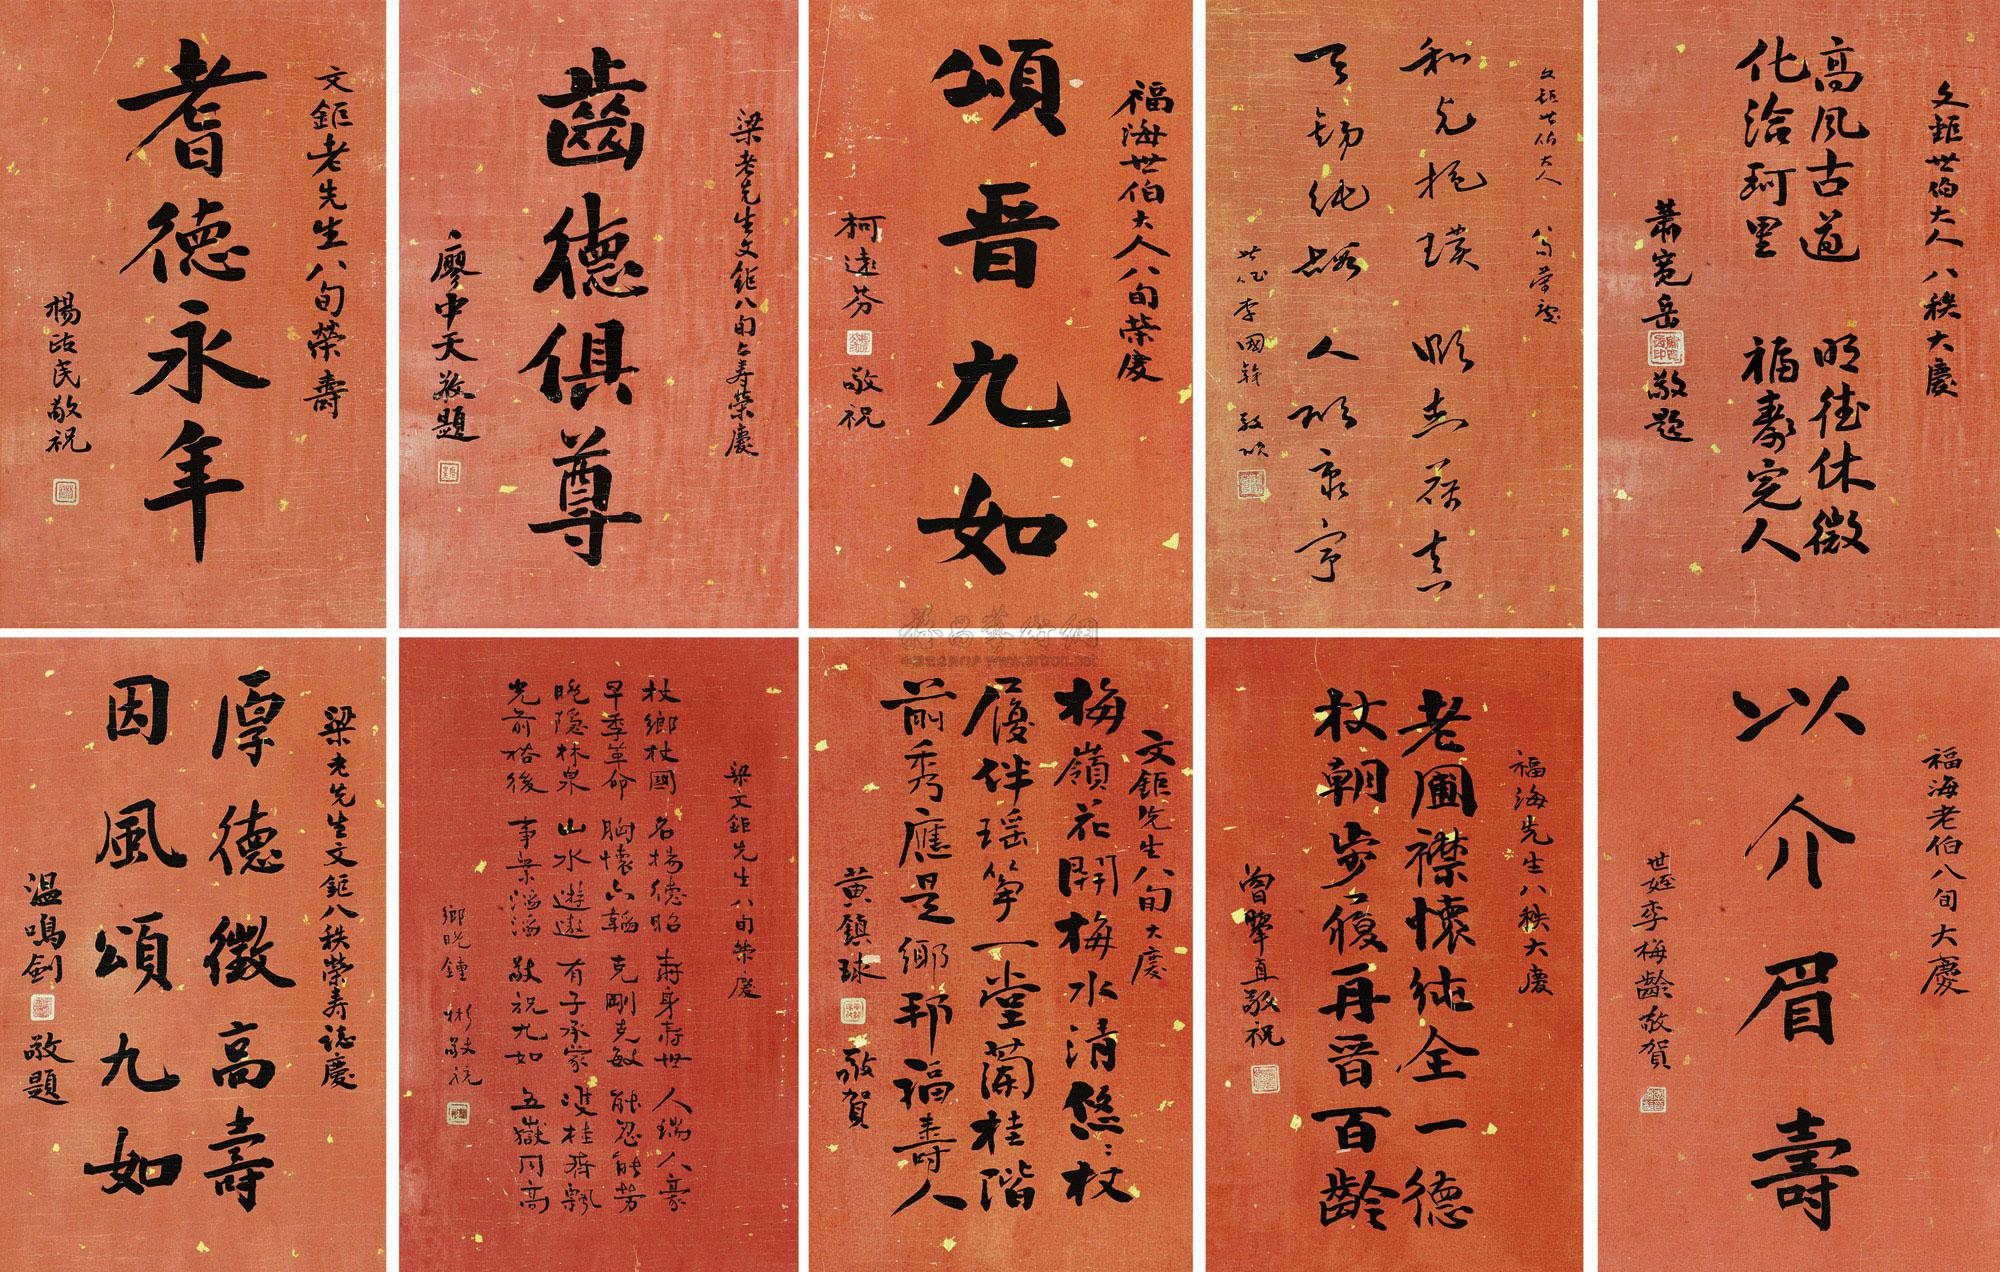 文鉅世伯大人八秩大慶
高風古道 明德休徵
化洽珂里 福壽完人
蕭寬岳
敬題
文鉅世伯大人 八旬榮慶
和光抱璞
天錫純嘏 人欣康寧
世侄李國幹敬頌
福海世伯大人八旬榮慶
頌晉九如
柯遠芬
敬祝
梁老先生文鉅八旬上壽榮慶
齒德俱尊
廖中天敬題
文鉅老先生八旬榮壽
耆德永年
楊政民敬祝
福海老伯八旬大慶
以介眉壽
世姪李梅齡敬賀
福海先生八秩大慶
老圃襟懷純全一德
杖朝步履再晉百齡
曾舉直敬祝
文鉅先生八旬大慶
梅嶺花開梅水清悠悠杖
履伴瑶箏一堂蘭桂階
前秀應是鄉邦福壽人
黃鎮球
敬賀
梁文鉅先生八旬榮慶
杖鄉杖國 名揚德昭 壽身壽世 人瑞人豪
早季革命 胸懷六韜 克剛克敏 能忍能勞
晚隱林泉 山水遊遨 有子承家 雙桂齊飄
光前裕後 事業滔滔 敬祝九如 五嶽同高
鄉晚鍾彬敬祝
梁老先生文鉅八秩榮壽誌慶
厚德徵高壽
因風頌九如
温鳴劍
敬題